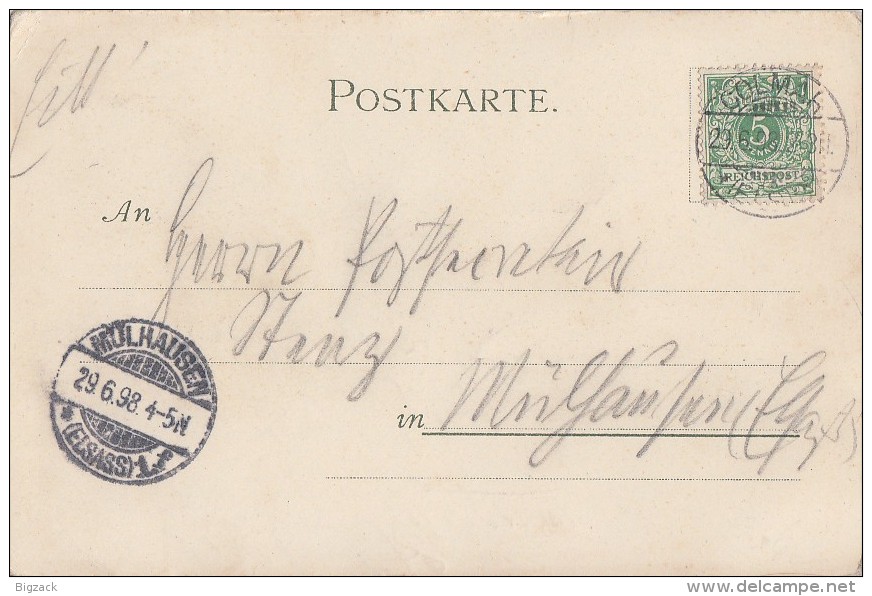 POSTKARTE.
COLMAR
29.6.
5
PFENNIG
REICHSPOST
An
Herrn Postsecretär
Stenz
MÜLHAUSEN
29.6.98. 4-5N
* (ELSASS) 1.
in Mülhausen (Els.)
Bigzack
www.delcampe.net